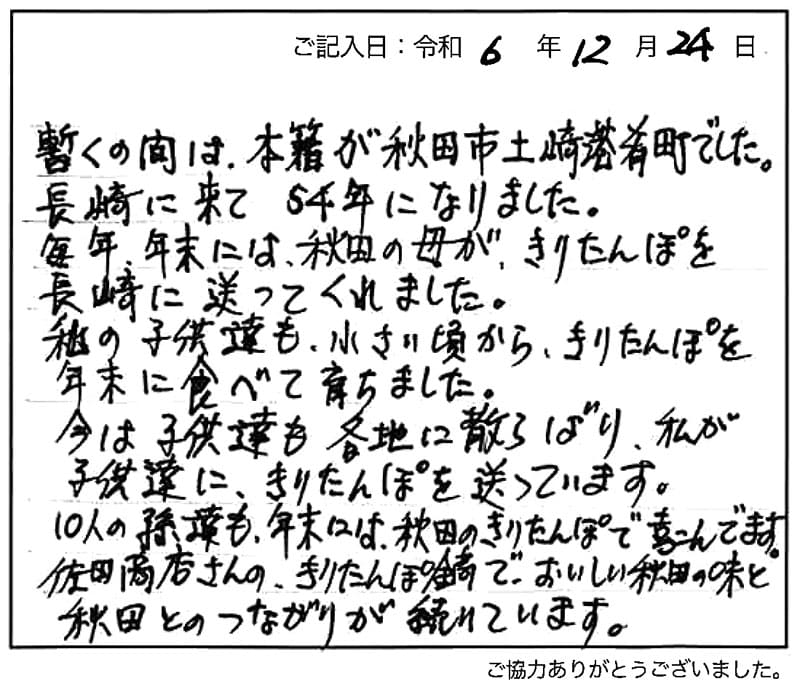 ご記入日：令和 6 年 12 月 24 日
暫くの間は、本籍が秋田市土崎港肴町でした。
長崎に来て 54年になりました。
毎年、年末には、秋田の母が、きりたんぽを
長崎に送ってくれました。
私の子供達も、小さい頃から、きりたんぽを
年末に食べて育ちました。
今は子供達も各地に散らばり、私が
子供達に、きりたんぽを送っています。
10人の孫達も、年末には、秋田のきりたんぽで喜こんでます。
佐田商店さんの、きりたんぽ鍋で、おいしい秋田の味と
秋田とのつながりが続けています。
ご協力ありがとうございました。